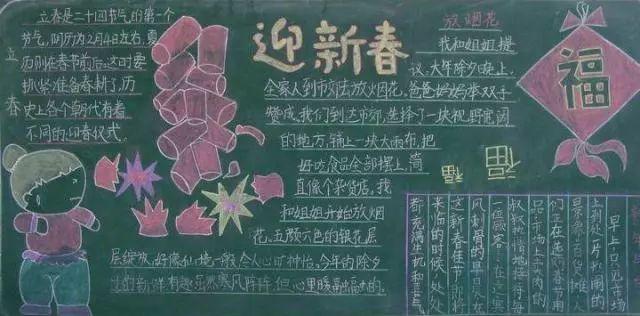 立春
立春是二十四节气的第一个
节气,阴历为2月4日左右,夏
历则在春节前后,这时要
抓紧准备春耕了,历
史上各个朝代有着
不同的迎春仪式.
迎新春
放烟花
我和姐姐提
议,大年除夕晚上,
全家人到市郊去放烟花,爸爸妈妈举双手
赞成,我们到达市郊,选择了一块视野宽阔
的地方,铺上一块大雨布,把
好吃食品全部摆上,简
直像个杂货店,我
和姐姐开始放烟
花,五颜六色的银花层
层绽放,好像仙境一般,令人心旷神怡,今年的除夕
新鲜有趣,虽然寒风阵阵,但心里暖融融的.
福
福
福
早上只见市场
上到处一片热闹的
景象,百货摊人
们正在选购着
品,市场上卖肉的
叔叔热情地招待每
一位顾客。在这寒
风刺骨的早日,在
这新春佳节即将
来临的时候,处处
都充满生机和喜气